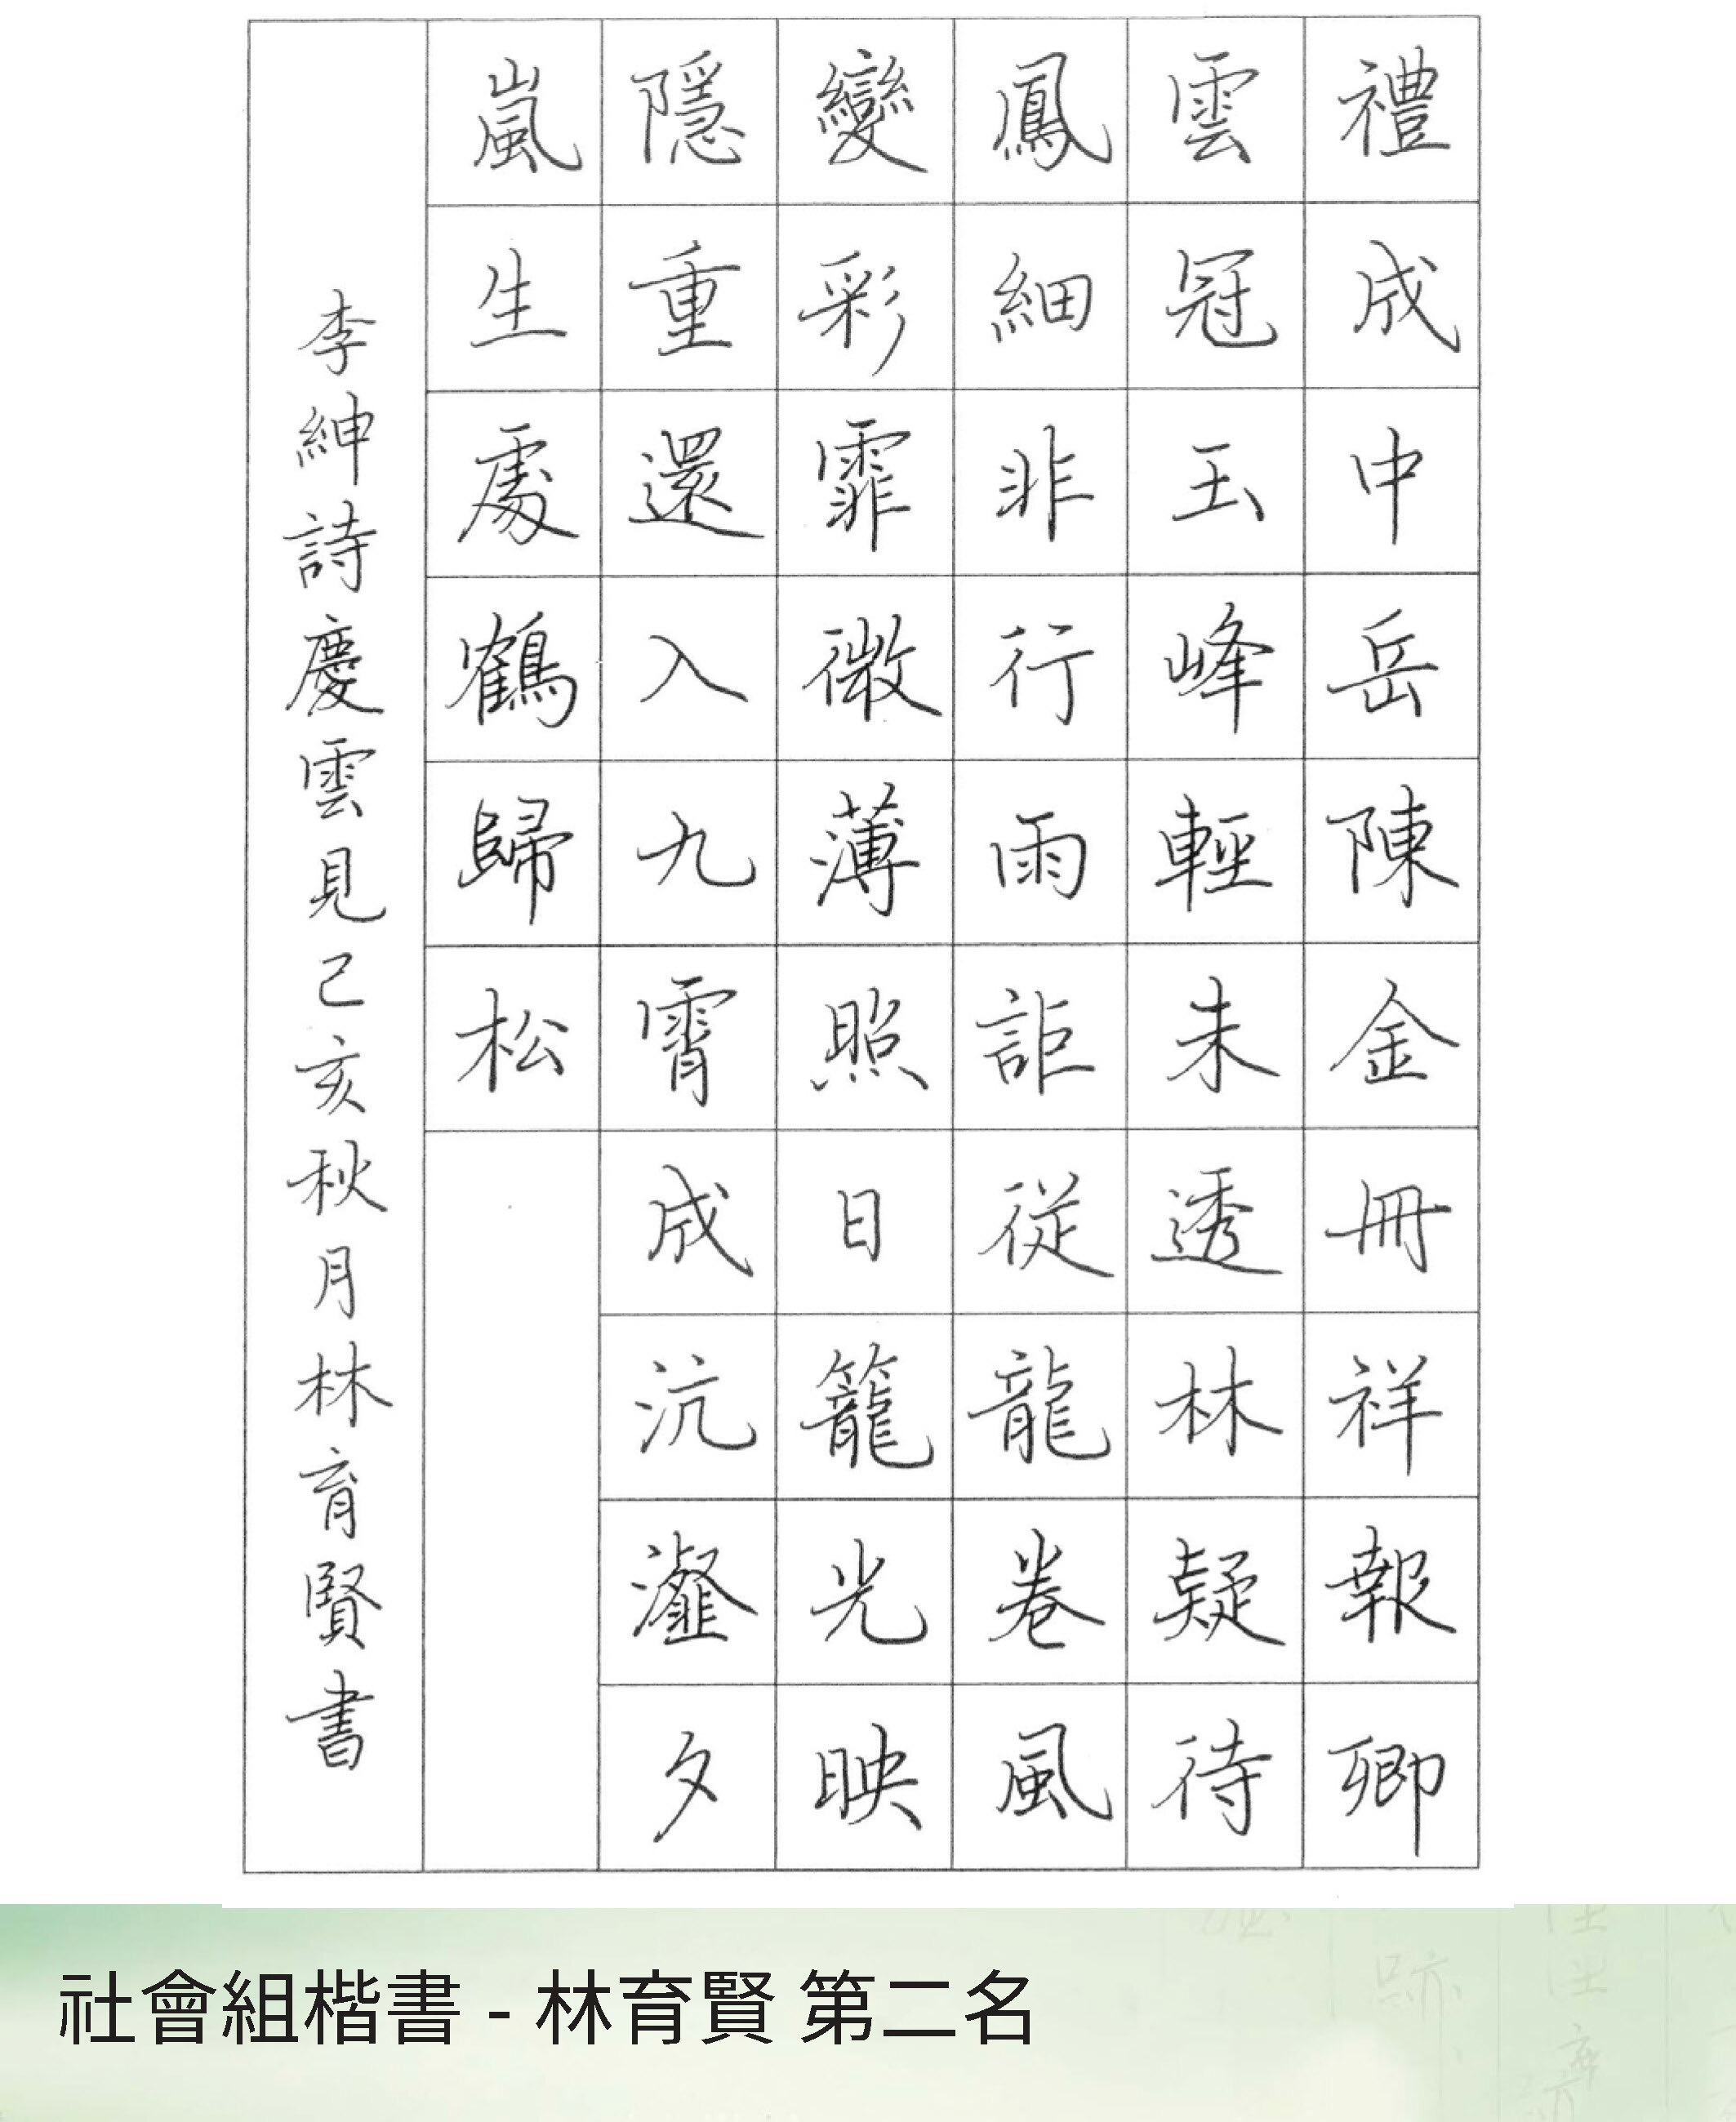 禮成中岳陳金冊祥報卿
雲冠玉峰輕未透林疑待
鳳細非行雨詎從龍卷風
變彩霏微薄照日籠光映
隱重還入九霄成沆瀣夕
嵐生處鶴歸松
李紳詩慶雲見己亥秋月林育賢書
社會組楷書 - 林育賢 第二名